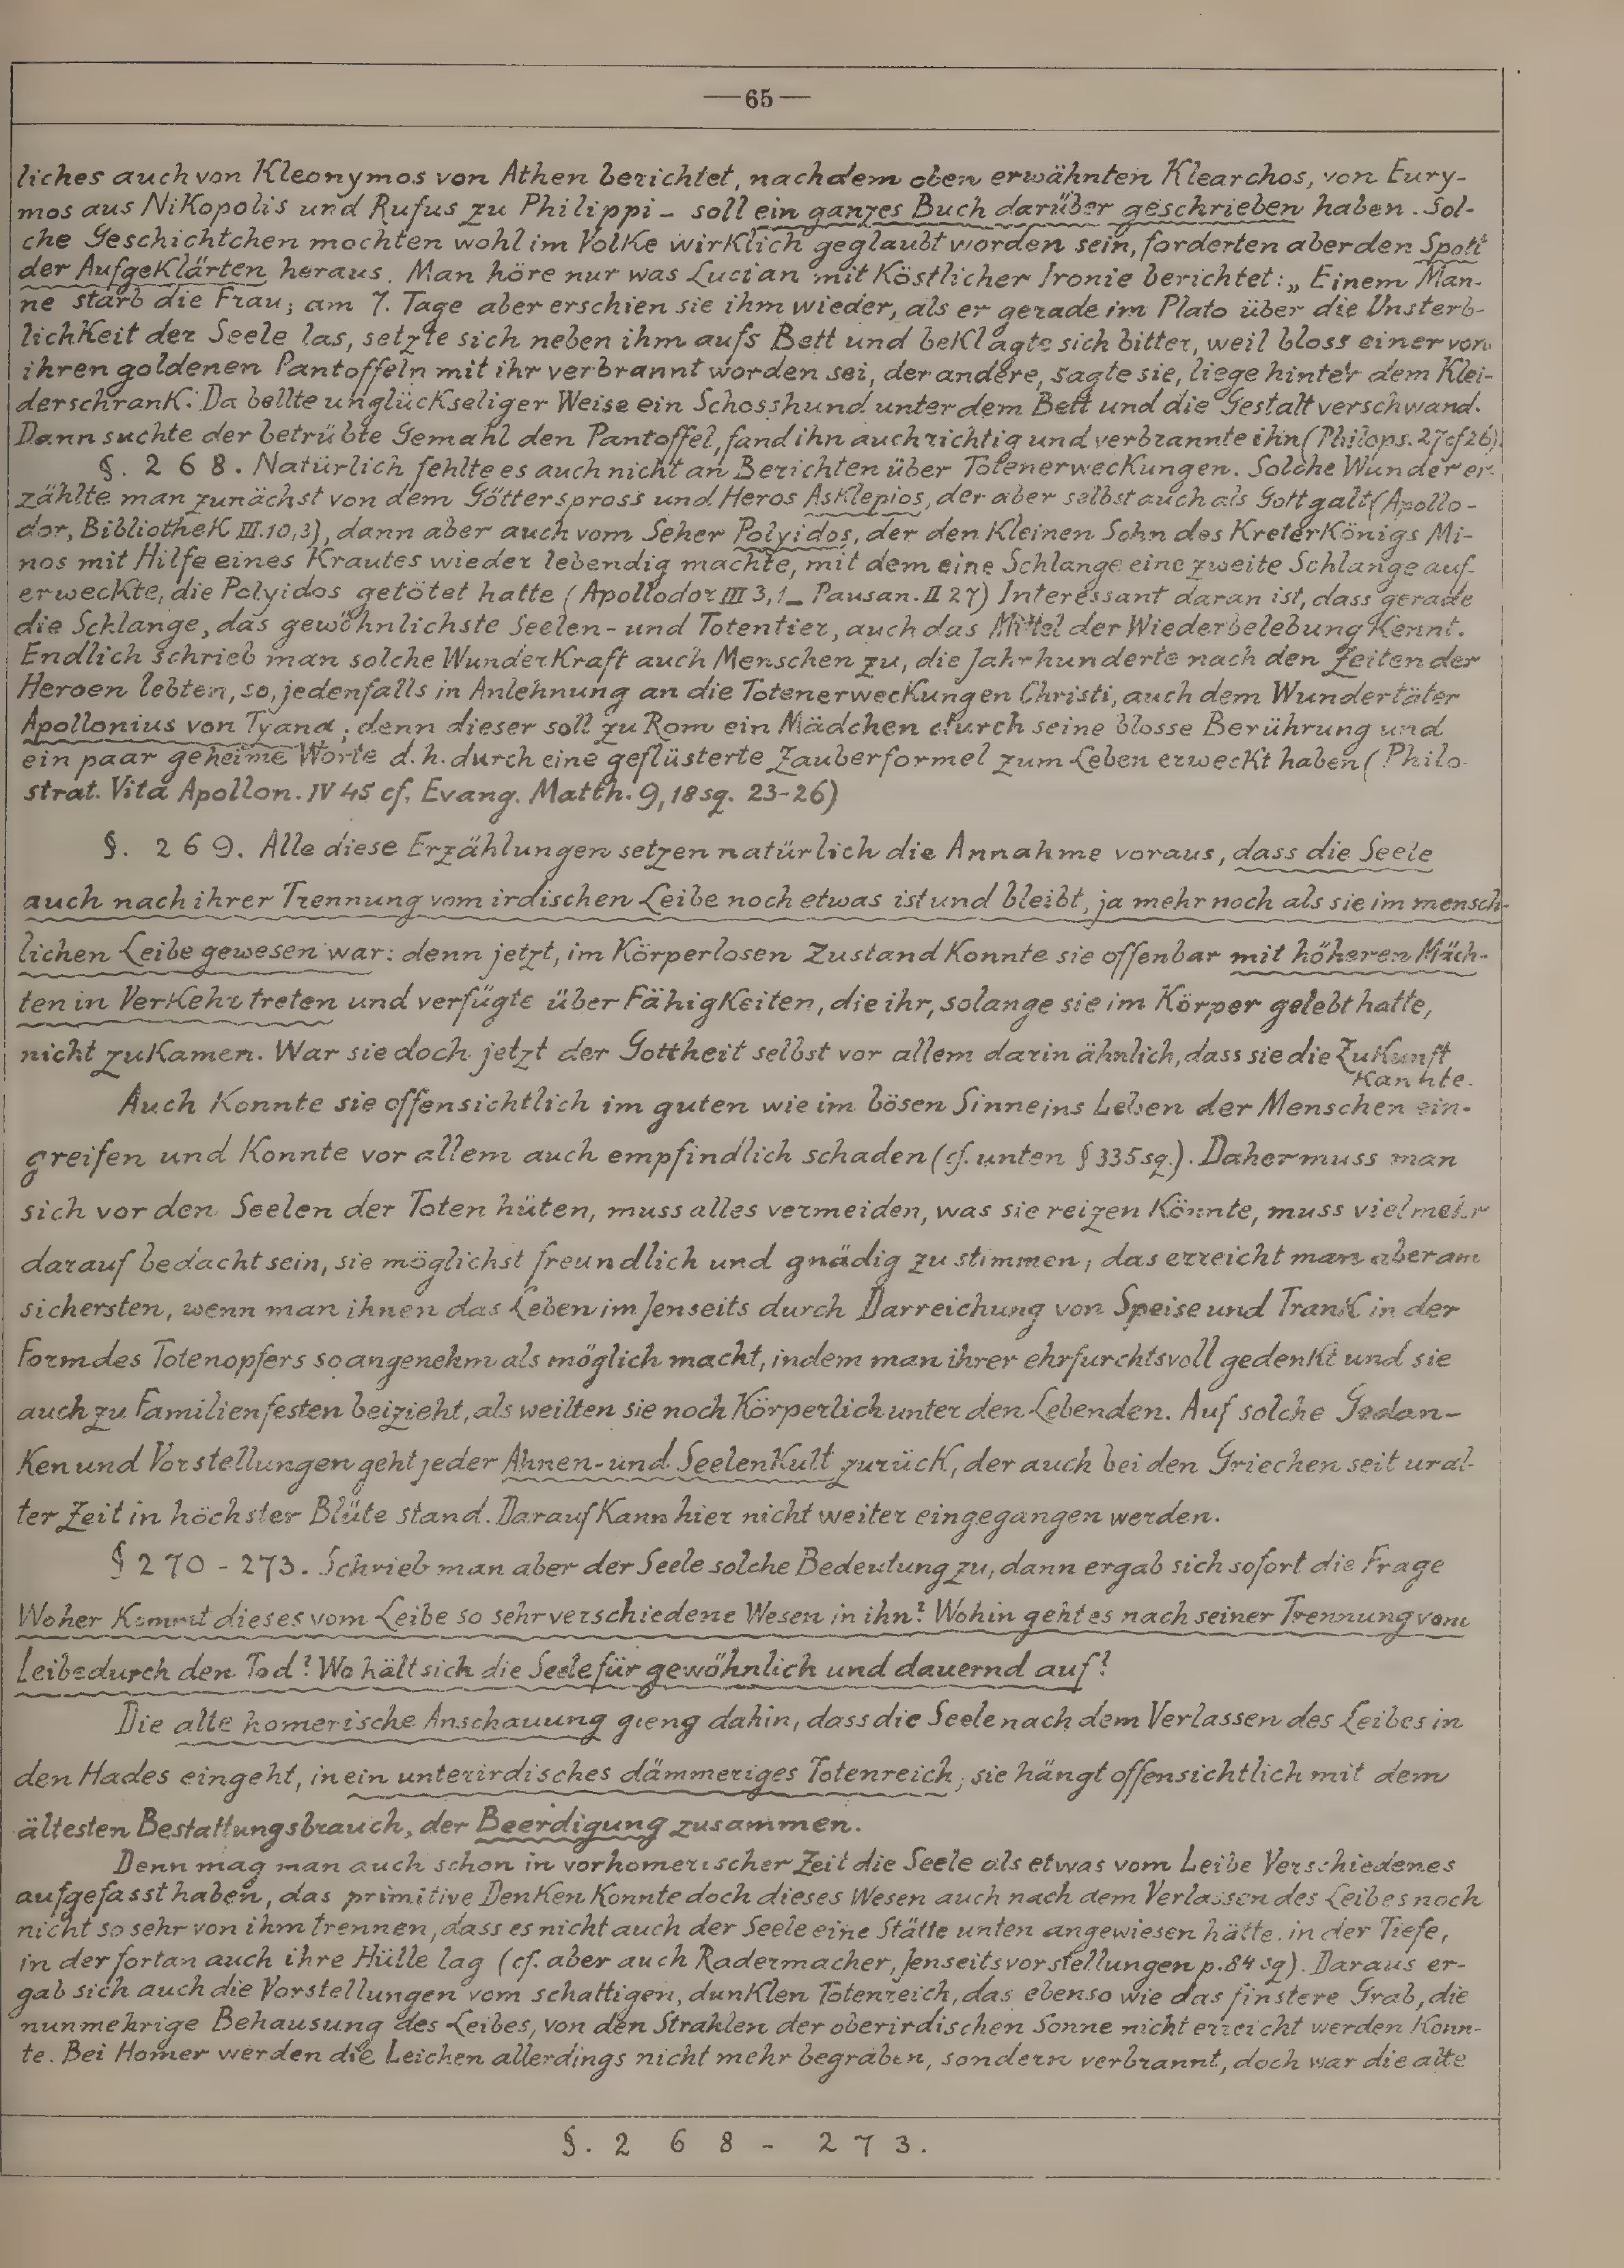 —65—
liches auch von Kleonymos von Athen berichtet, nach dem oben erwähnten Klearchos, von Eury-
mos aus Nikopolis und Rufus zu Philippi - soll ein ganzes Buch darüber geschrieben haben. Sol-
che Geschichtchen mochten wohl im Volke wirklich geglaubt worden sein, forderten aber den Spott
der Aufgeklärten heraus. Man höre nur was Lucian mit köstlicher Ironie berichtet: „Einem Man-
ne starb die Frau; am 7. Tage aber erschien sie ihm wieder, als er gerade im Plato über die Unsterb-
lichkeit der Seele las, setzte sich neben ihm aufs Bett und beklagte sich bitter, weil bloss einer von
ihren goldenen Pantoffeln mit ihr verbrannt worden sei, der andere, sagte sie, liege hinter dem Klei-
derschrank. Da bellte unglückseliger Weise ein Schosshund unter dem Bett und die Gestalt verschwand.
Dann suchte der betrübte Gemahl den Pantoffel, fand ihn auch richtig und verbrannte ihn (Philops. 27 cf 26).
§. 268. Natürlich fehlte es auch nicht an Berichten über Totenerweckungen. Solche Wunder er-
zählte man zunächst von dem Götterspross und Heros Asklepios, der aber selbst auch als Gott galt (Apollo-
dor, Bibliothek III.10,3), dann aber auch vom Seher Polyidos, der den kleinen Sohn des Kreterkönigs Mi-
nos mit Hilfe eines Krautes wieder lebendig machte, mit dem eine Schlange eine zweite Schlange auf-
erweckte, die Polyidos getötet hatte (Apollodor III 3,1 - Pausan. II 27) Interessant daran ist, dass gerade
die Schlange, das gewöhnlichste Seelen- und Totentier, auch das Mittel der Wiederbelebung kennt.
Endlich schrieb man solche Wunderkraft auch Menschen zu, die Jahrhunderte nach den Zeiten der
Heroen lebten, so, jedenfalls in Anlehnung an die Totenerweckungen Christi, auch dem Wundertäter
Apollonius von Tyana; denn dieser soll zu Rom ein Mädchen durch seine blosse Berührung und
ein paar geheime Worte d.h. durch eine geflüsterte Zauberformel zum Leben erweckt haben (Philo-
strat. Vita Apollon. IV 45 cf. Evang. Matth. 9,18 sq. 23-26)
§. 269. Alle diese Erzählungen setzen natürlich die Annahme voraus, dass die Seele
auch nach ihrer Trennung vom irdischen Leibe noch etwas ist und bleibt, ja mehr noch als sie im mensch-
lichen Leibe gewesen war: denn jetzt, im körperlosen Zustand konnte sie offenbar mit höheren Mäch-
ten in Verkehr treten und verfügte über Fähigkeiten, die ihr, solange sie im Körper gelebt hatte,
nicht zukamen. War sie doch jetzt der Gottheit selbst vor allem darin ähnlich, dass sie die Zukunft
kannte.
Auch konnte sie offensichtlich im guten wie im bösen Sinne ins Leben der Menschen ein-
greifen und konnte vor allem auch empfindlich schaden (cf. unten § 335 sq.). Daher muss man
sich vor den Seelen der Toten hüten, muss alles vermeiden, was sie reizen könnte, muss vielmehr
darauf bedacht sein, sie möglichst freundlich und gnädig zu stimmen; das erreicht man aber am
sichersten, wenn man ihnen das Leben im Jenseits durch Darreichung von Speise und Trank in der
Form des Totenopfers so angenehm als möglich macht, indem man ihrer ehrfurchtsvoll gedenkt und sie
auch zu Familienfesten beizieht, als weilten sie noch körperlich unter den Lebenden. Auf solche Gedan-
ken und Vorstellungen geht jeder Ahnen- und Seelenkult zurück, der auch bei den Griechen seit ural-
ter Zeit in höchster Blüte stand. Darauf kann hier nicht weiter eingegangen werden.
§ 270 - 273. Schrieb man aber der Seele solche Bedeutung zu, dann ergab sich sofort die Frage
Woher kommt dieses vom Leibe so sehr verschiedene Wesen in ihn? Wohin geht es nach seiner Trennung vom
Leibe durch den Tod? Wo hält sich die Seele für gewöhnlich und dauernd auf?
Die alte homerische Anschauung gieng dahin, dass die Seele nach dem Verlassen des Leibes in
den Hades eingeht, in ein unterirdisches dämmeriges Totenreich; sie hängt offensichtlich mit dem
ältesten Bestattungsbrauch, der Beerdigung zusammen.
Denn mag man auch schon in vorhomerischer Zeit die Seele als etwas vom Leibe Verschiedenes
aufgefasst haben, das primitive Denken konnte doch dieses Wesen auch nach dem Verlassen des Leibes noch
nicht so sehr von ihm trennen, dass es nicht auch der Seele eine Stätte unten angewiesen hätte, in der Tiefe,
in der fortan auch ihre Hülle lag (cf. aber auch Radermacher, Jenseitsvorstellungen p. 84 sq). Daraus er-
gab sich auch die Vorstellungen vom schattigen, dunklen Totenreich, das ebenso wie das finstere Grab, die
nunmehrige Behausung des Leibes, von den Strahlen der oberirdischen Sonne nicht erreicht werden konn-
te. Bei Homer werden die Leichen allerdings nicht mehr begraben, sondern verbrannt, doch war die alte
§. 268 - 273.